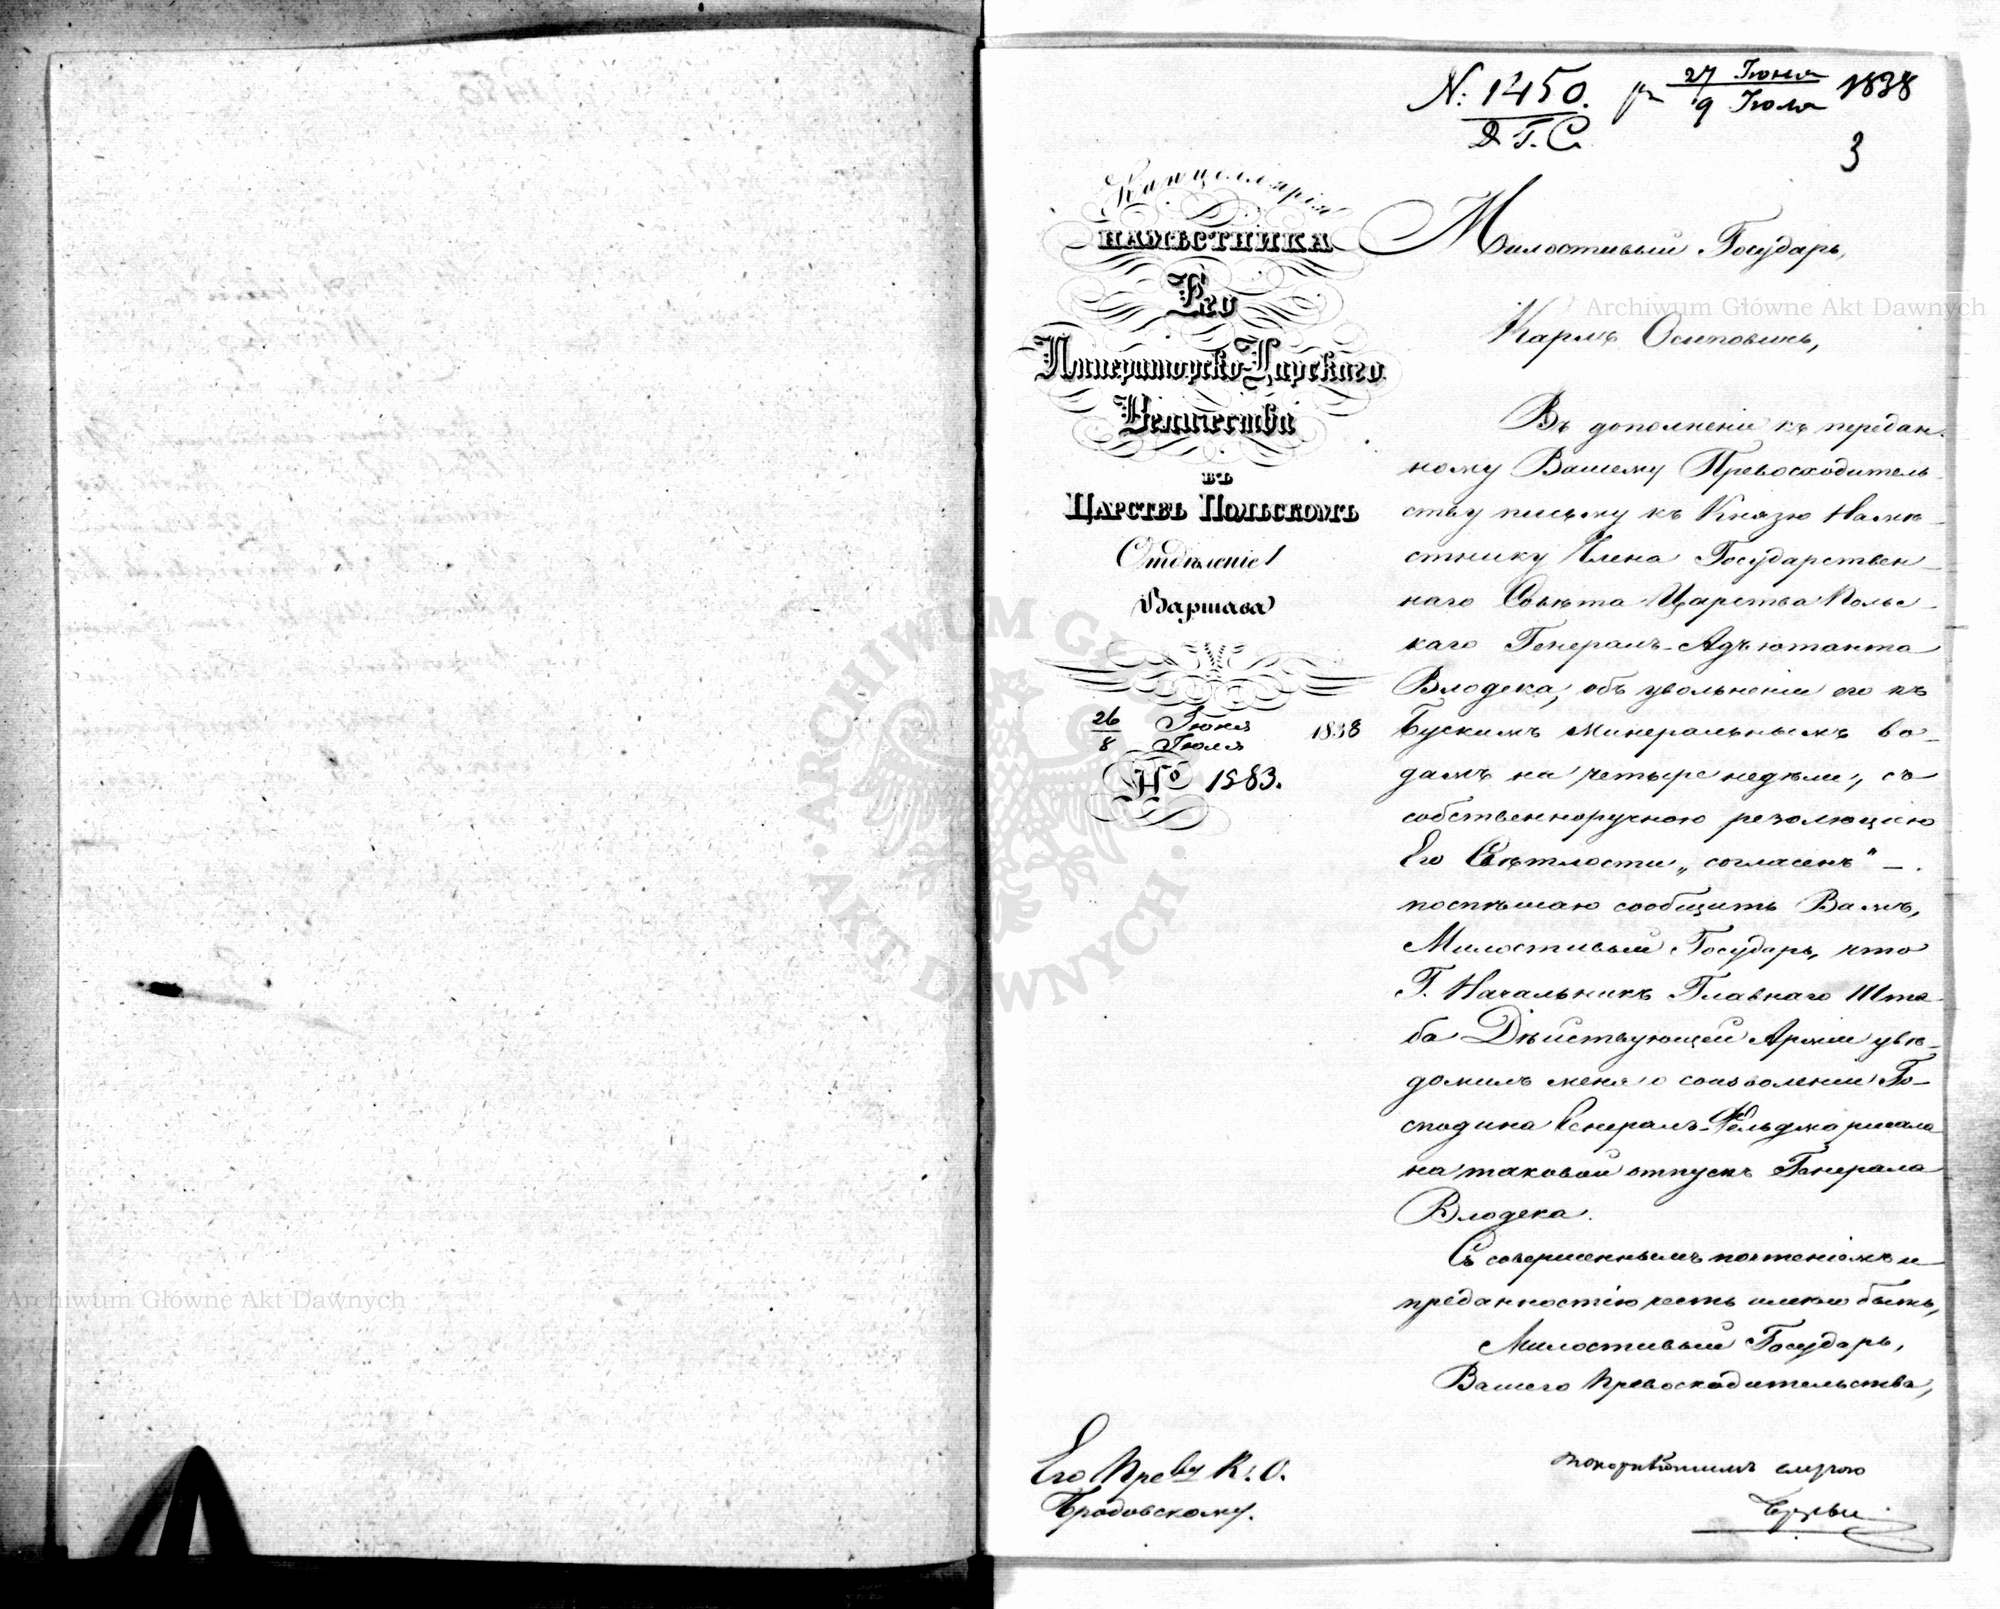 N: 1450. 27 Іюня 1838
Д. Г. С. 9 Іюля
3
Канцелярія
НАМѢСТНИКА
Его
Императорско-Царскаго
Величества
въ
Царствѣ Польскомъ
Отдѣленіе 1
Варшава
26 Іюня 1838
8 Іюля
No 1583.
Милостивый Государь,
Карлъ Осиповичь,
Въ дополненіе къ передан-
ному Вашему Превосходитель-
ству письму къ Князю Намѣ-
стнику Члена Государствен-
наго Совѣта Царства Поль-
скаго Генералъ-Адъютанта
Влодека, объ увольненіи его къ
Бускимъ минеральнымъ во-
дамъ на четыре недѣли, съ
собственноручною резолюціею
Его Свѣтлости „согласенъ“ —
поспѣшаю сообщить Вамъ,
Милостивый Государь, что
Г. Начальникъ Главнаго Шта-
ба Дѣйствующей Арміи увѣ-
домилъ меня о соизволеніи Го-
сподина Генералъ-Фельдмаршала
на таковой отпускъ Генерала
Влодека.
Съ совершеннымъ почтеніемъ и
преданностію честь имѣю быть,
Милостивый Государь,
Вашего Превосходительства,
покорнѣйшимъ слугою
Его Прев-ву К. О.
Бродовскому.
Archiwum Główne Akt Dawnych
ARCHIWUM GŁÓWNE AKT DAWNYCH
Archiwum Główne Akt Dawnych